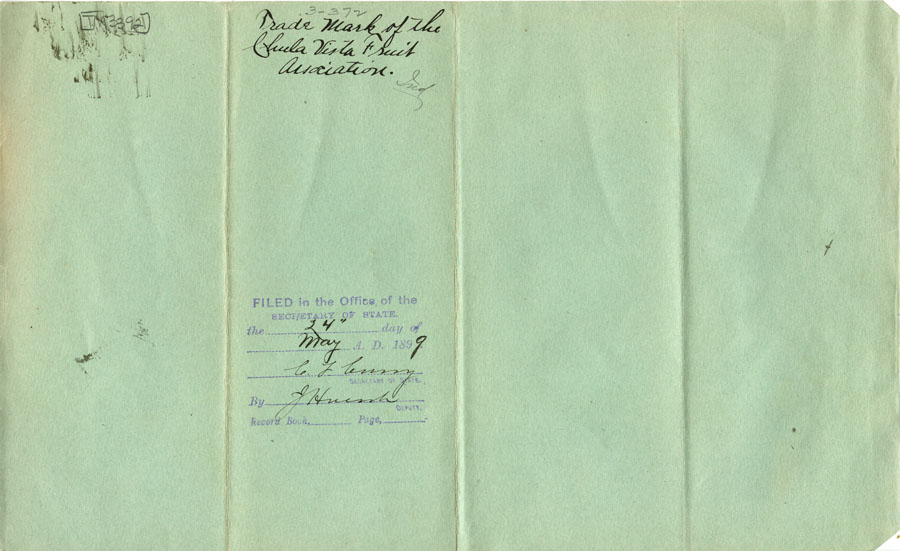 TM3392
3-372
Trade Mark of the
Chula Vista Fruit
Association.
Ind
FILED in the Office, of the
SECRETARY OF STATE.
the 24" day of
May A. D. 1899.
C. F. Curry
SECRETARY OF STATE.
By J Hoesch
DEPUTY.
Record Book, Page,